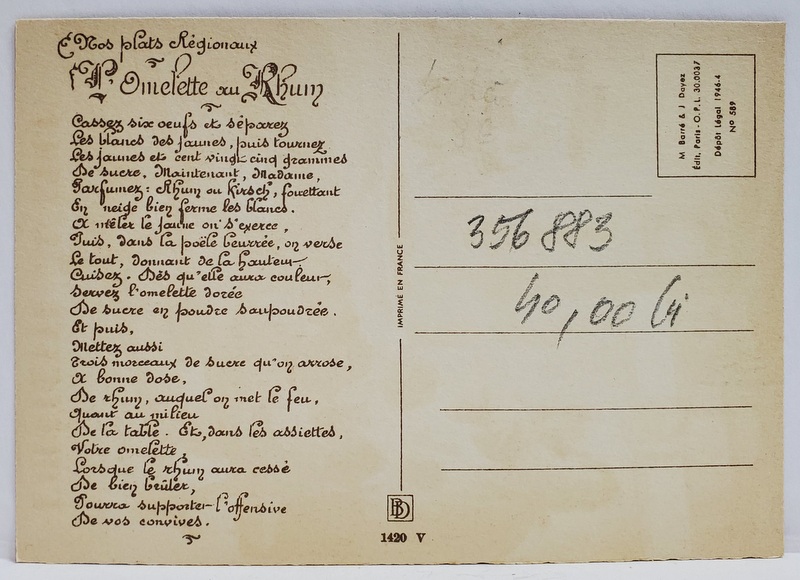 Nos plats Régionaux
L'Omelette au Rhum
Cassez six oeufs et séparez
Les blancs des jaunes, puis tournez
Les jaunes et cent vingt cinq grammes
De sucre. Maintenant, Madame,
Parfumez : Rhum ou Kirsch, fouettant
En neige bien ferme les blancs.
A mêler le jaune on s'exerce,
Puis, dans la poêle beurrée, on verse
Le tout, donnant de la hauteur
Cuisez. Dès qu'elle aura couleur,
Servez l'omelette dorée
De sucre en poudre saupoudrée.
Et puis,
Mettez aussi
Trois morceaux de sucre qu'on arrose,
A bonne dose,
De rhum, auquel on met le feu,
Quant au milieu
De la table. Et, dans les assiettes,
Votre omelette,
Lorsque le rhum aura cessé
De bien brûler,
Pourra supporter l'offensive
De vos convives.
IMPRIMÉ EN FRANCE
BD
1420 V
M Barré & J Dayez
Édit, Paris - O.P.L. 30.0037
Dépôt Légal 1946-4
N° 589
356883
40,00